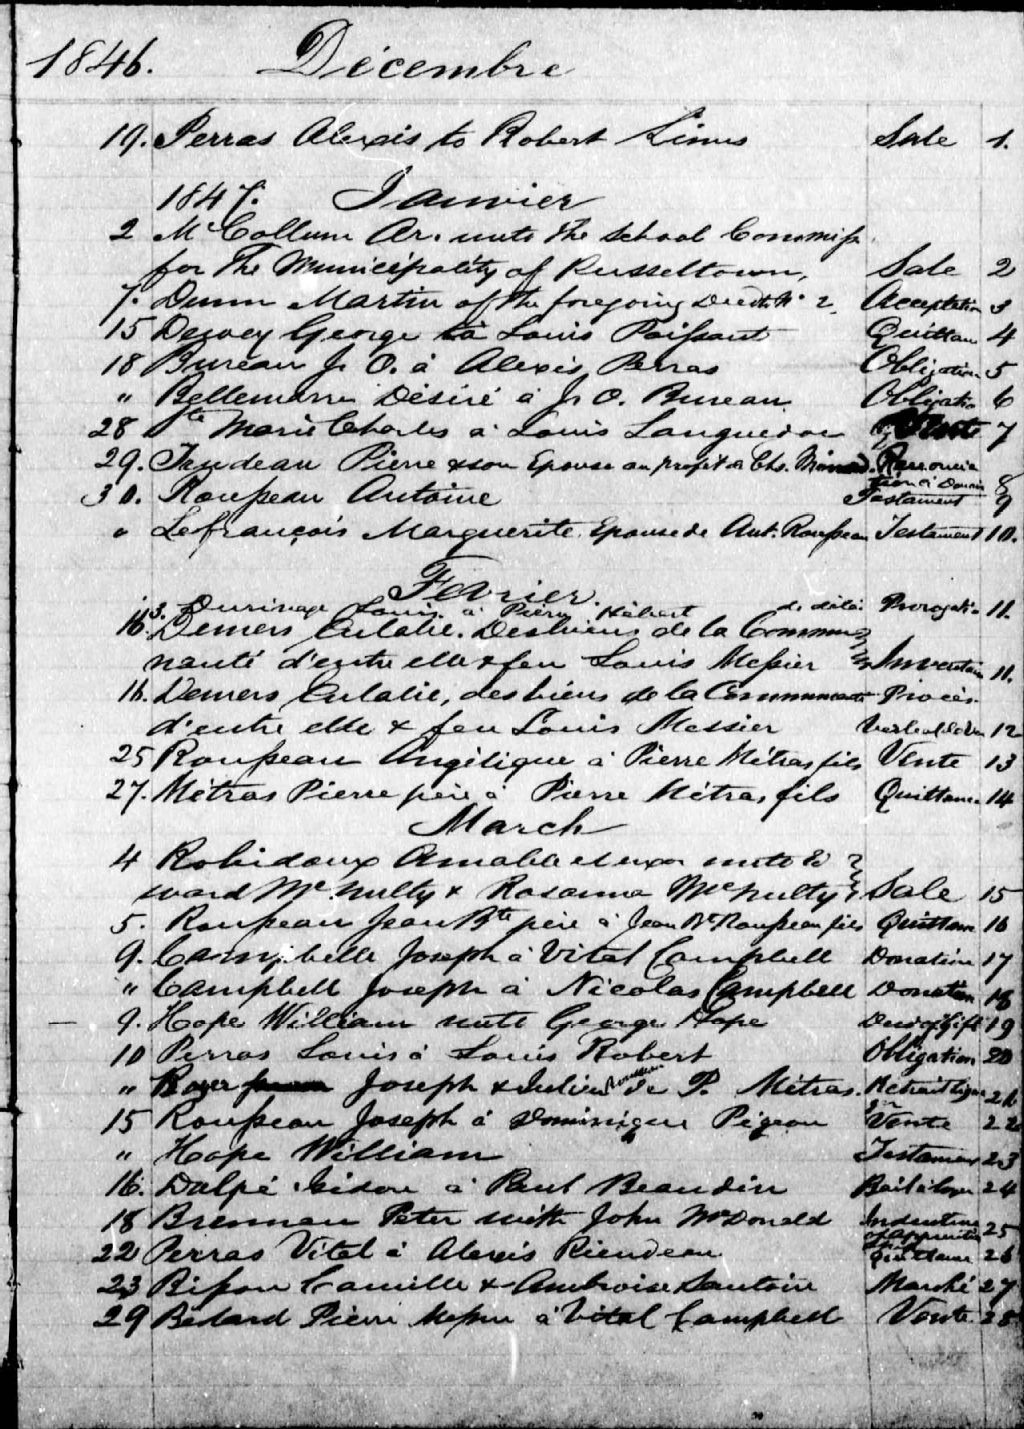 1846. Décembre
19. Perras Alexis to Robert Sale 1.
1847. Janvier
2 McCollum Ar. unto the school Commiss
for the Municipality of Russeltown, Sale 2
7. Dunn Martin of the foregoing Deed No. 2. Acceptation 3
15 Dewey George à Louis Poissant Quittan 4
18 Bureau J. O. à Alexis Perras Obligation 5
" Bellemarre Désiré à J. O. Bureau Obligatio 6
28 Ste Marie Charles à Louis Languedoc Vente 7
29. Trudeau Pierre & son Epouse au profit de Chs. Renoncia
tion à 8
30. Rousseau Antoine Testament 9
" Lefrançois Marguerite Epouse de Ant. Rousseau Testament 10.
Fevrier
13. Louis à Pierre Hébert de délai Prorogatio 11.
16. Demers Eulalie. Des biens de la Commu
nauté d'entre elle & feu Louis Messier Inventaire 11.
16. Demers Eulalie, des biens de la Communauté Procès
d'entre elle & feu Louis Messier Verbal 12
25 Rousseau Angélique à Pierre Métras fils Vente 13
27. Métras Pierre père à Pierre Métras, fils Quittance 14
March
4 Robidoux Amable et uxor unto Ed
ward McNulty & Rosanna McNulty Sale 15
5. Rousseau Jean Bte père à Jean Bte Rousseau fils Quittance 16
9. Campbelle Joseph à Vital Campbell Donation 17
" Campbell Joseph à Nicolas Campbell Donation 18
9. Hope William unto George Hope Deed of Gift 19
10 Perras Louis à Louis Robert Obligation 20
" Joseph & Julien de P. Métras. Retrait 21
15 Rousseau Joseph à Dominique Pigeon Vente 22
" Hope William Testament 23
16. Dalpé Isidore à Paul Beaudin Bail à loyer 24
18 Brennan Peter with John McDonald Indenture
of 25
22 Perras Vital à Alexis Riendeau Quittance 26
23 Bisson Camille & Ambroise Santoire Marché 27
29 Bédard Pierre à Vital Campbell Vente 28